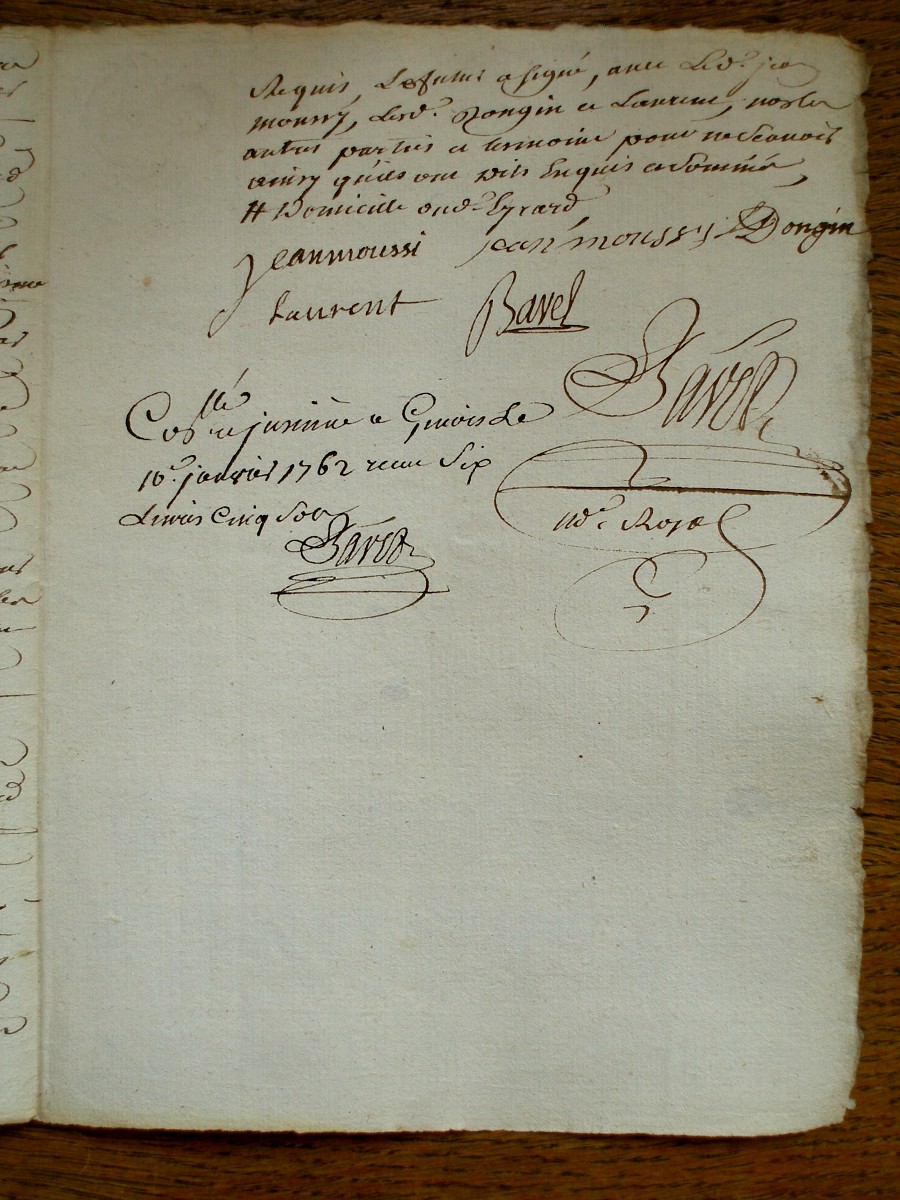 Requis, Le futur a signé, avec Led. jea
moussy, Lesd. Dongin et Laurent, non les
autres parties et temoins pour ne Scavoir
ainsy qu'ils ont dits Enquis et Sommé,
# Domicile oud. Eyrard
jeanmoussi jean moussy Dongin
Laurent Bavel
llé
Con et a Givors Le
10e. janvier 1762 reçu Six
Livres Cinq Sols
Royal